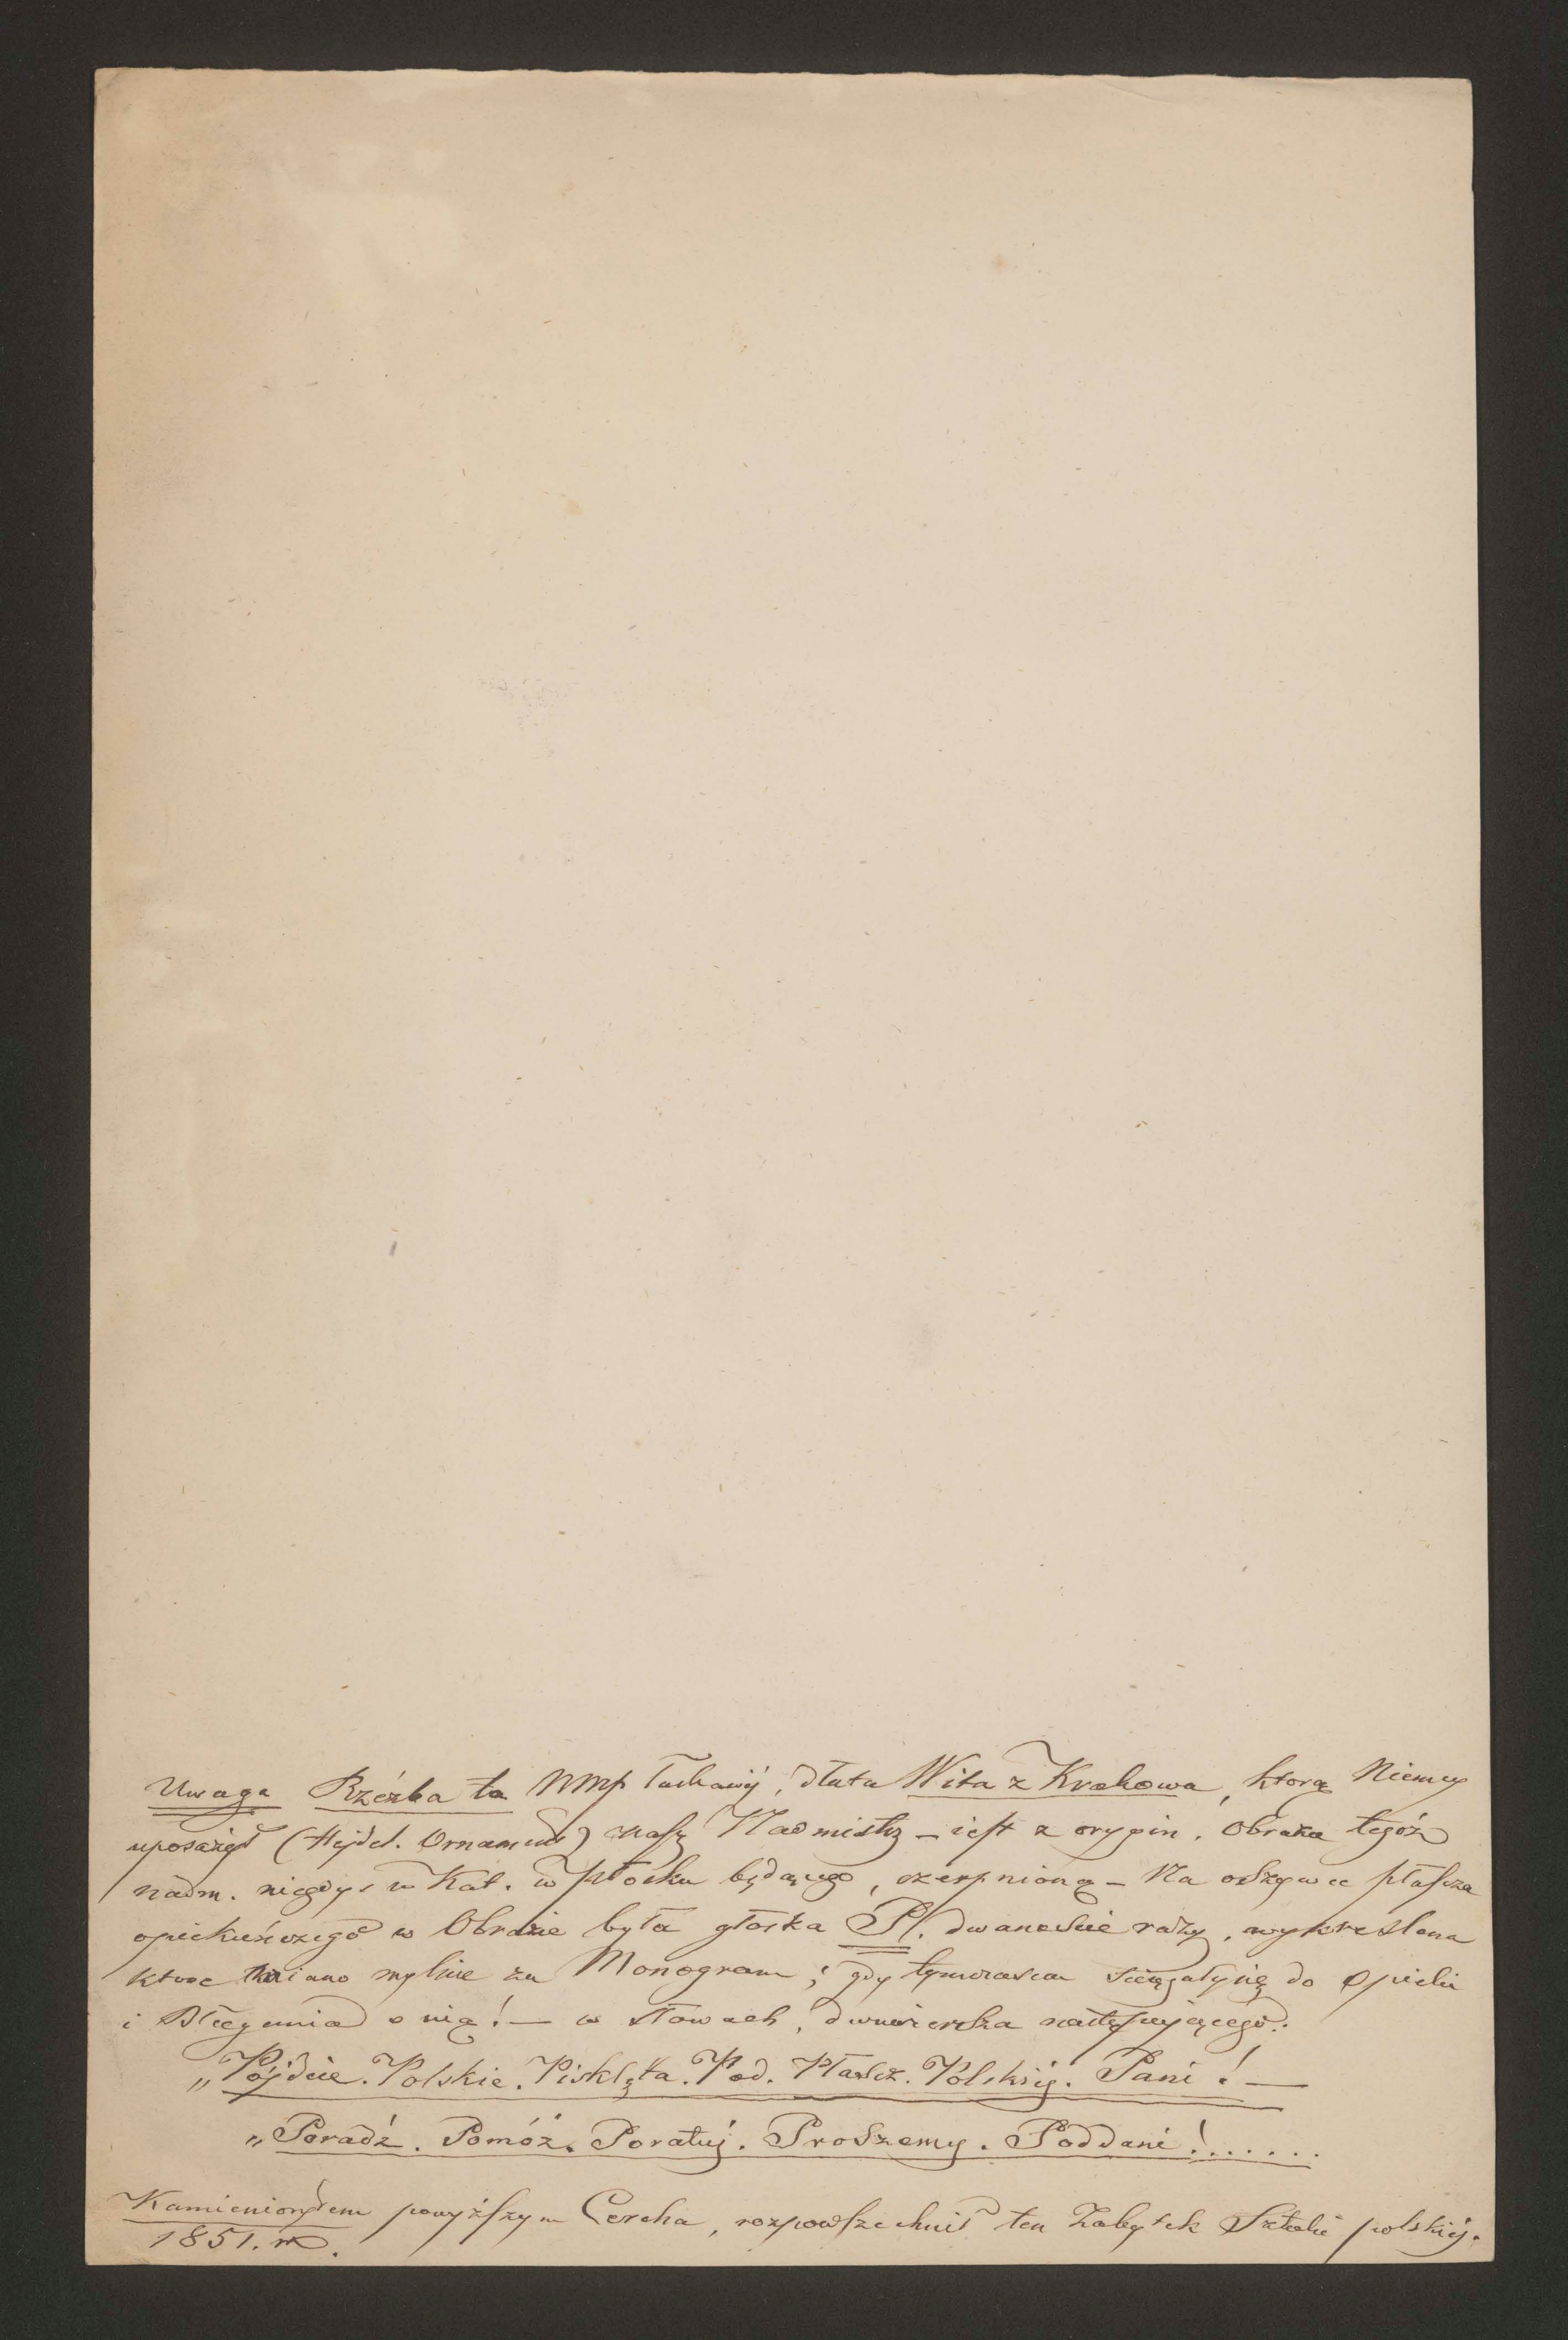 Uwaga Rzeźba ta NMP łaskawéj, dłuta Wita z Krakowa, ktorą Niemcy
uposażył (Hejdel. Ornament) nasz Nadmistrz – iest z orygin. Obraza tegóż
nadm. niegdyś w Kat. w Płocku będącego, czerpnioną – Na odzywce płascza
opiekuńczego w Obrazie była głoska P. dwanaście razy, wykreslona
ktore miano mylnie za Monogram; gdy tymczasem ściągały się do opieki
i błagania o nią! – w słowach, dwuwiersza następującego:
„Pójdzie. Polskie. Pisklęta. Pod. Płascz. Polskiéj. Pani! –
„Poradź. Pomóż. Poratuj. Proszemy. Poddani!......
Kamieniorytem powyższym Cercha, rozpowszechnił ten Zabytek Sztuki polskiéj.
1851. r.